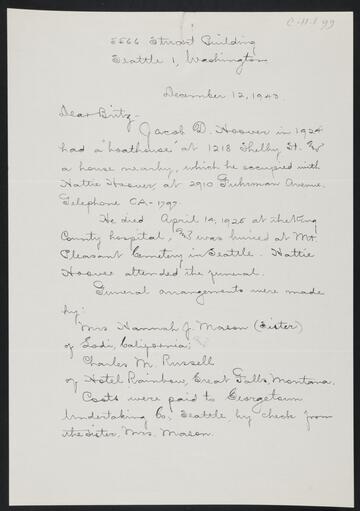 C-11-1 99
5566 Stuart Building
Seattle 1, Washington
December 12, 1948.
Dear Britz-
Jacob D. Hoover in 1924
had a "boathouse" at 1218 Shelby St. &
a house nearby, which he occupied with
Hattie Hoover, at 2910 Fuhrman Avenue.
Telephone CA-1797.
He died April 14, 1925 at the King
County hospital, & was buried at Mt.
Pleasant Cemetery in Seattle. Hattie
Hoover attended the funeral.
Funeral arrangements were made
by:
Mrs Hannah J. Mason (Sister)
of Lodi, California;
Charles M. Russell
of Hotel Rainbow, Great Falls, Montana.
Costs were paid to Georgetown
Undertaking Co., Seattle, by check from
the sister, Mrs. Mason.